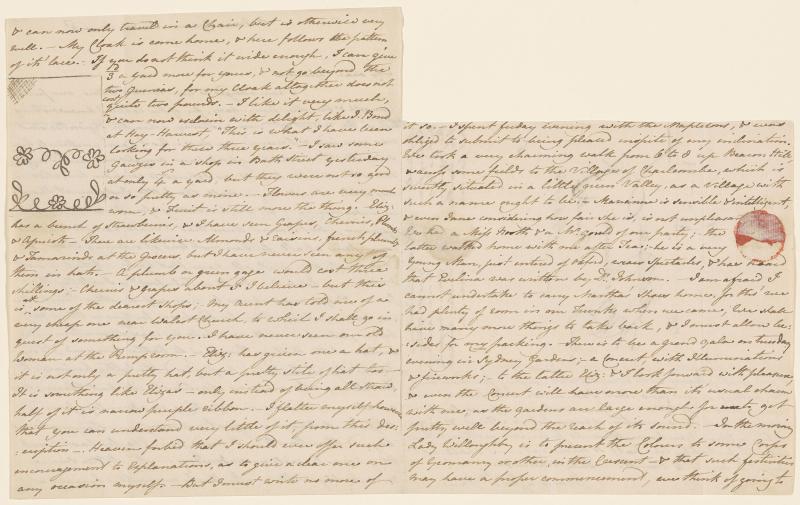 & can now only travel in a Chair, but is otherwise very
well. - My Cloak is come home, & here follows the pattern
of its' lace. - If you do not think it wide enough, I can give
3d a yard more for yours, & not go beyond the
two Guineas, for my Cloak altogether does not
cost quite two pounds. - I like it very much,
& can now exclaim with delight, like J. Bond
at Hay-Harvest, "This is what I have been
looking for these three years." - I saw some
Gauzes in a shop in Bath Street yesterday
at only 4s a yard, but they were not so good
or so pretty as mine. - Flowers are very much
worn, & Fruit is still more the thing. - Eliz:
has a bunch of Strawberries, & I have seen Grapes, Cherries, Plumbs
& Apricots - There are likewise Almonds & raisins, french plumbs
& Tamarinds at the Grocers, but I have never seen any of
them in hats. - A plumb or green gage would cost three
shillings; - Cherries & grapes about 5 I believe - but this
is at some of the dearest Shops; - My Aunt has told me of a
very cheap one near Walcot Church, to which I shall go in
quest of something for you. - I have never seen an old
Woman at the Pump room. - Eliz: has given me a hat, &
it is not only a pretty hat, but a pretty stile of hat too -
It is something like Eliza's - only instead of being all straw,
half of it is narrow purple ribbon. - I flatter myself however
that you can understand very little of it, from this des-
:cription -. Heaven forbid that I should ever offer such
encouragement to Explanations, as to give a clear one on
any occasion myself. - But I must write no more of
it so. - I spent friday evening with the Mapletons, & was
obliged to submit to being pleased inspite of my inclination.
We took a very charming walk from 6 to 8 up Beacon Hill,
& across some fields to the Village of Charlcombe, which is
sweetly situated in a little green Valley, as a Village with
such a name ought to be. - Marianne is sensible & intelligent,
& even Jane considering how fair she is, is not unpleasant.
We had a Miss North & a Mr Gould of our party; - the
latter walked home with me after Tea; - he is a very
Young Man, just entered of Oxford, wears Spectacles, & has heard
that Evelina was written by Dr Johnson. - I am afraid I
cannot undertake to carry Martha's Shoes home, for tho' we
had plenty of room in our Trunks when we came, We shall
have many more things to take back, & I must allow be-
:sides for my packing. - There is to be a grand gala on tuesday
evening in Sydney Gardens; - a Concert, with Illuminations
& fireworks; - to the latter Eliz: & I look forward with pleasure,
& even the Concert will have more than its' usual charm
with me, as the gardens are large enough for me to get
pretty well beyond the reach of its sound. - In the morning
Lady Willoughby is to present the Colours to some Corps
of Yeomanry or other, in the Crescent - & that such festivities
may have a proper commencement, we think of going to